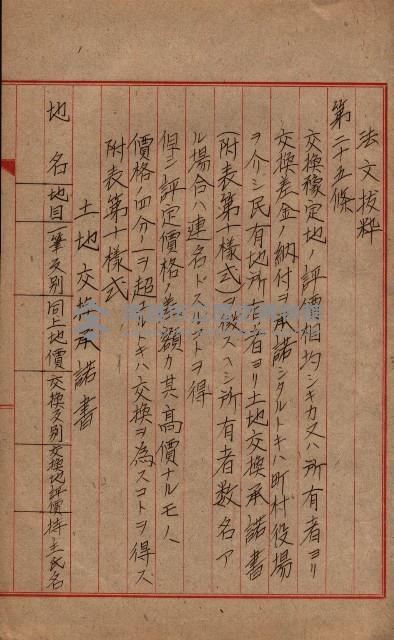 法文抜粹
第二十五條
交換豫定地ノ評價相均シキカ又ハ所有者ヨリ
交換差金ノ納付ヲ承諾シタルトキハ町村役場
ヲ介シ民有地所有者ヨリ土地交換承諾書
(附表第十樣式)ヲ徴スヘシ所有者数名ア
ル場合ハ連名トスルコトヲ得
但シ評定價格ノ差額カ其高價ナルモノヽ
價格ノ四分ノ一ヲ超ユルトキハ交換ヲ為スコトヲ得ス
附表第十樣式
土地交換承諾書
地名 地目 一筆又別 同上地價 交換又別 交換地評價 持主氏名